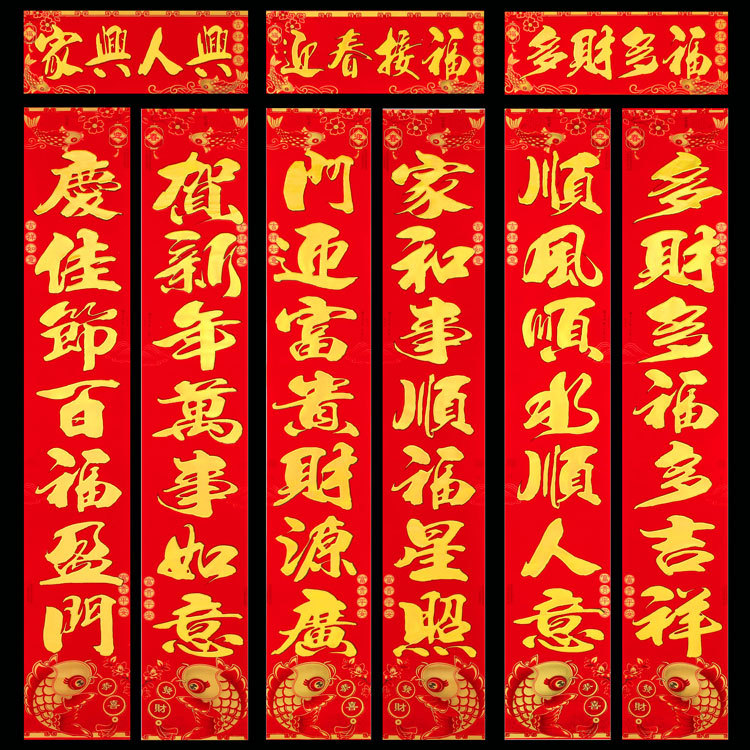 家興人興
賀新年萬事如意
慶佳節百福盈門
迎春接福
家和事順福星照
門迎富貴財源廣
多財多福
多財多福多吉祥
順風順水順人意
財
喜
財
喜
財
喜